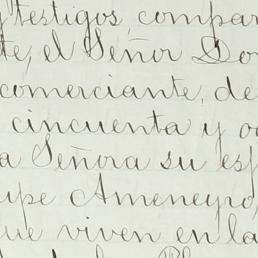 y testigos, compar
te, el Señor Do
comerciante, de
cincuenta y oc
a Señora su esp
upe Ameneyro,
que viven en la